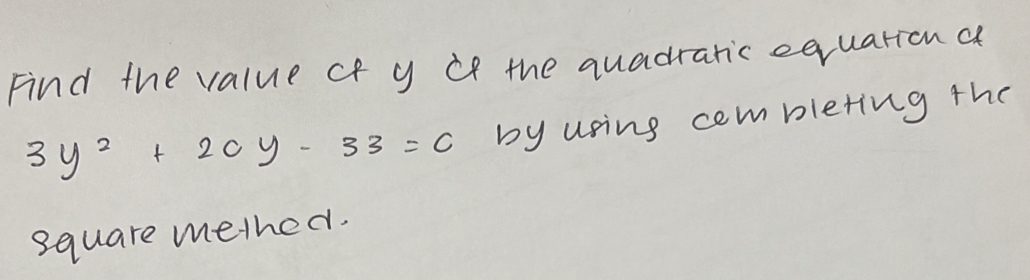 Find the value of y of the quadratic equation of
3y² + 20y - 33 = 0 by using completing the
square method.